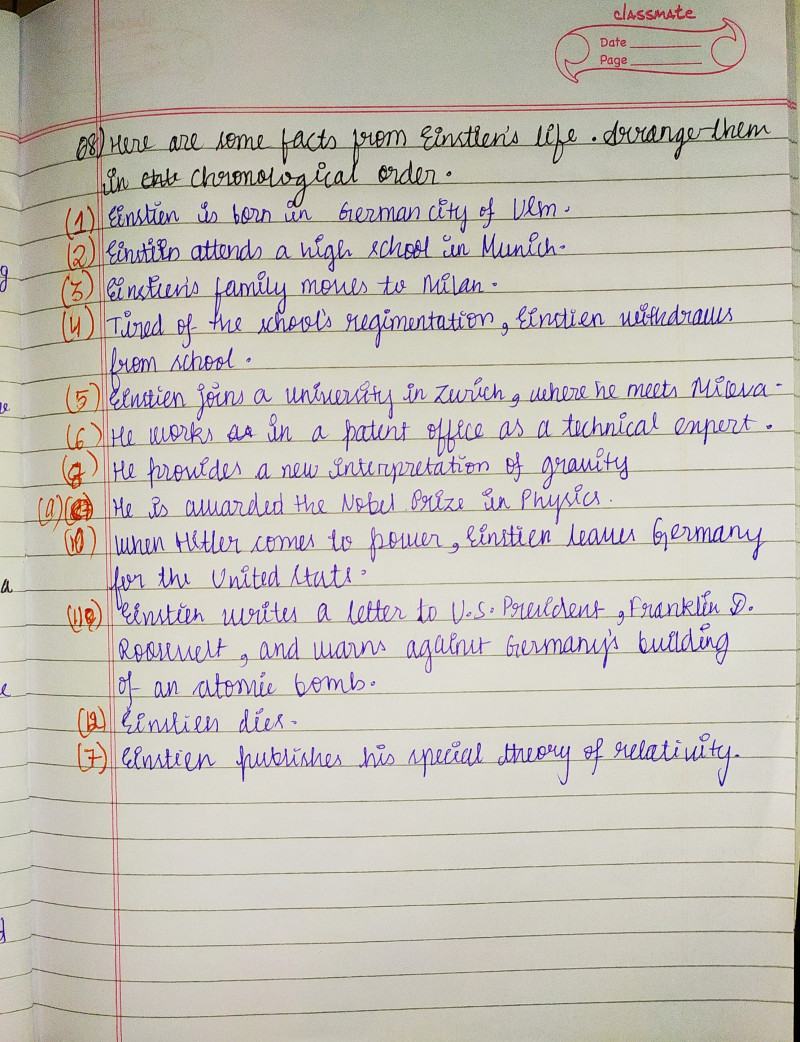 classmate
Date
Page
Q8) Here are some facts from Einstien's life. Arrange them
in chronological order.
(1) Einstien is born in German city of Ulm.
(2) Einstien attends a high school in Munich.
(3) Einstien's family moves to Milan.
(4) Tired of the school's regimentation, Einstien withdraws
from school.
(5) Einstien joins a university in Zurich, where he meets Mileva-
(6) He works in a patent office as a technical expert.
He provides a new interpretation of gravity
(9) He is awarded the Nobel Prize in Physics.
(10) When Hitler comes to power, Einstien leaves Germany
for the United State.
(11) Einstien writes a letter to U.S. President, Franklin D.
Roosevelt, and warns against Germany's building
of an atomic bomb.
(12) Einstien dies.
(7) Einstien publishes his special theory of relativity.